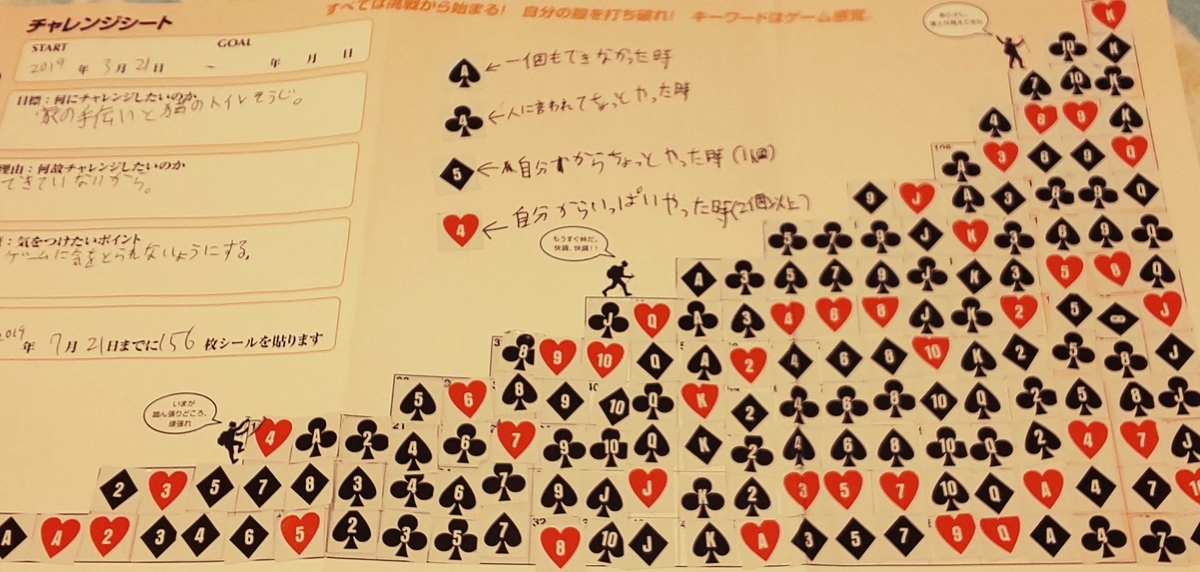 チャレンジシート
すべては挑戦から始まる! 自分の殻を打ち破れ! キーワードはゲーム感覚
START GOAL
2019 年 3月 21日 ~ 年 月 日
目標:何にチャレンジしたいのか
家の手伝いと猫のトイレそうじ。
理由:何故チャレンジしたいのか
できていないから。
:気をつけたいポイント
ゲームに気をとられないようにする。
2019年 7月 21日までに156 枚シールを貼ります
A ←一個もできなかった時
4 ←人に言われてちょっとやった時
5 ←自分からちょっとやった時(1個)
4 ←自分からいっぱいやった時(2個以上)
もうすぐ峠だ。
快調、快調!!
いまが
踏ん張りどころ、
頑張れ
K
10 K
7 10 K
4 6 9 K
A 3 8 9 Q
9 J A 3 8 9 Q
5 7 9 J K 3 8 9 Q
A 3 5 7 9 J K 3 5 8 Q
J Q A 3 4 6 8 J K 2 5 8 J
8 9 10 Q A 2 4 6 8 10 K 2 5 8 J
5 6 8 9 10 Q K 2 4 6 8 10 Q 2 5 8 J
4 A 2 4 6 7 9 10 Q K 2 4 6 8 10 Q 2 4 7 J
2 3 5 7 8 3 4 6 7 9 J J K 2 3 5 7 10 Q A 4 7 10
A A 2 3 4 6 5 2 3 5 7 8 10 J K A 3 5 7 9 Q A 4 7